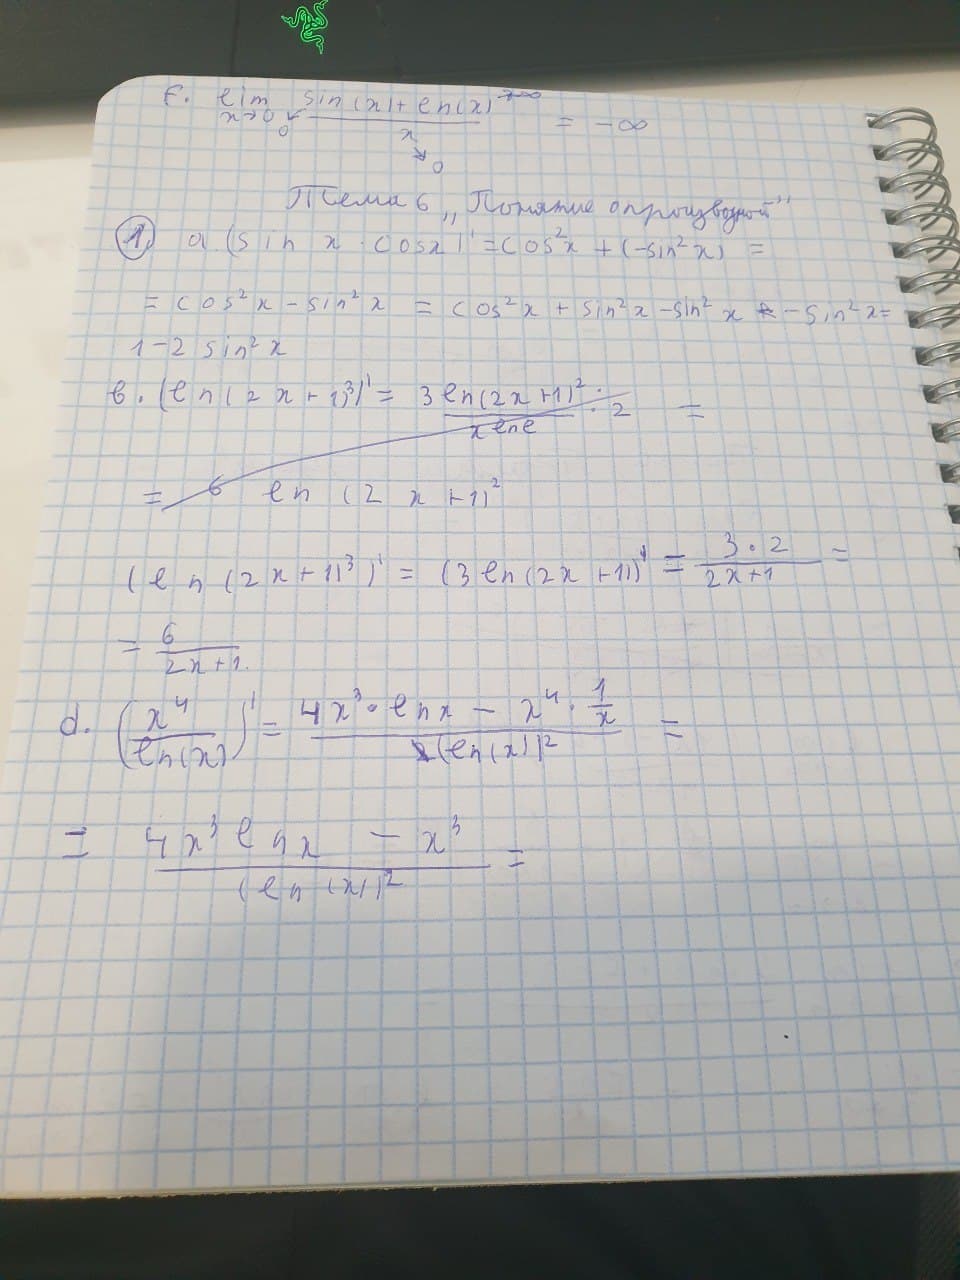 f. lim sin(x)+ln(x) →-∞
x→0 0 x = -∞
0
Тема 6 „Понятие о производной"
1. a. (sin x · cosx)' = cos²x + (-sin²x) =
= cos²x - sin²x = cos²x + sin²x - sin²x - sin²x =
1-2 sin²x
b. (ln(2x+1)³)' = 3ln(2x+1)² · 2 =
x lne
= 6 ln (2x+1)²
(ln(2x+1)³)' = (3ln(2x+1))' = 3·2 =
2x+1
= 6
2x+1.
d. (x⁴)' = 4x³·lnx - x⁴·1/x =
ln(x) (ln(x))²
= 4x³lnx - x³ =
(ln(x))²